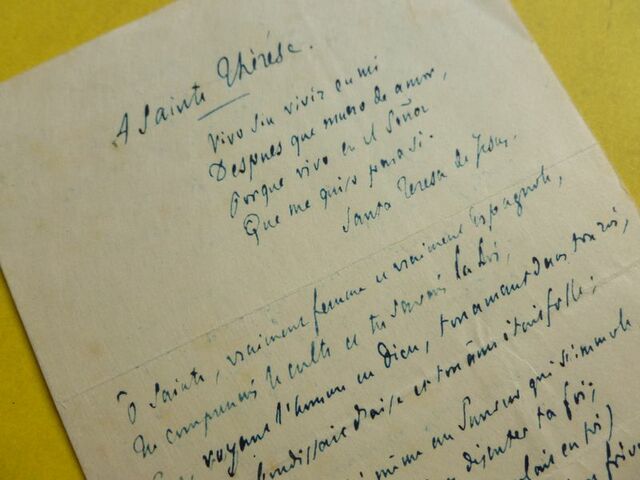 A Sainte Thérèse.
Vivo sin vivir en mi
Despues que muero de amor,
Porque vivo en el Señor
Que me quiso para si.
Santa Teresa de Jesus.
Ô Sainte, vraiment femme et vraiment Espagnole,
Tu comprenais le culte et tu savais la Loi,
voyant l'homme en Dieu, ton amant dans ton roi,
bondissait d'aise et ton âme était folle;
même au Sauveur qui s'immole
ta foi;
en toi)